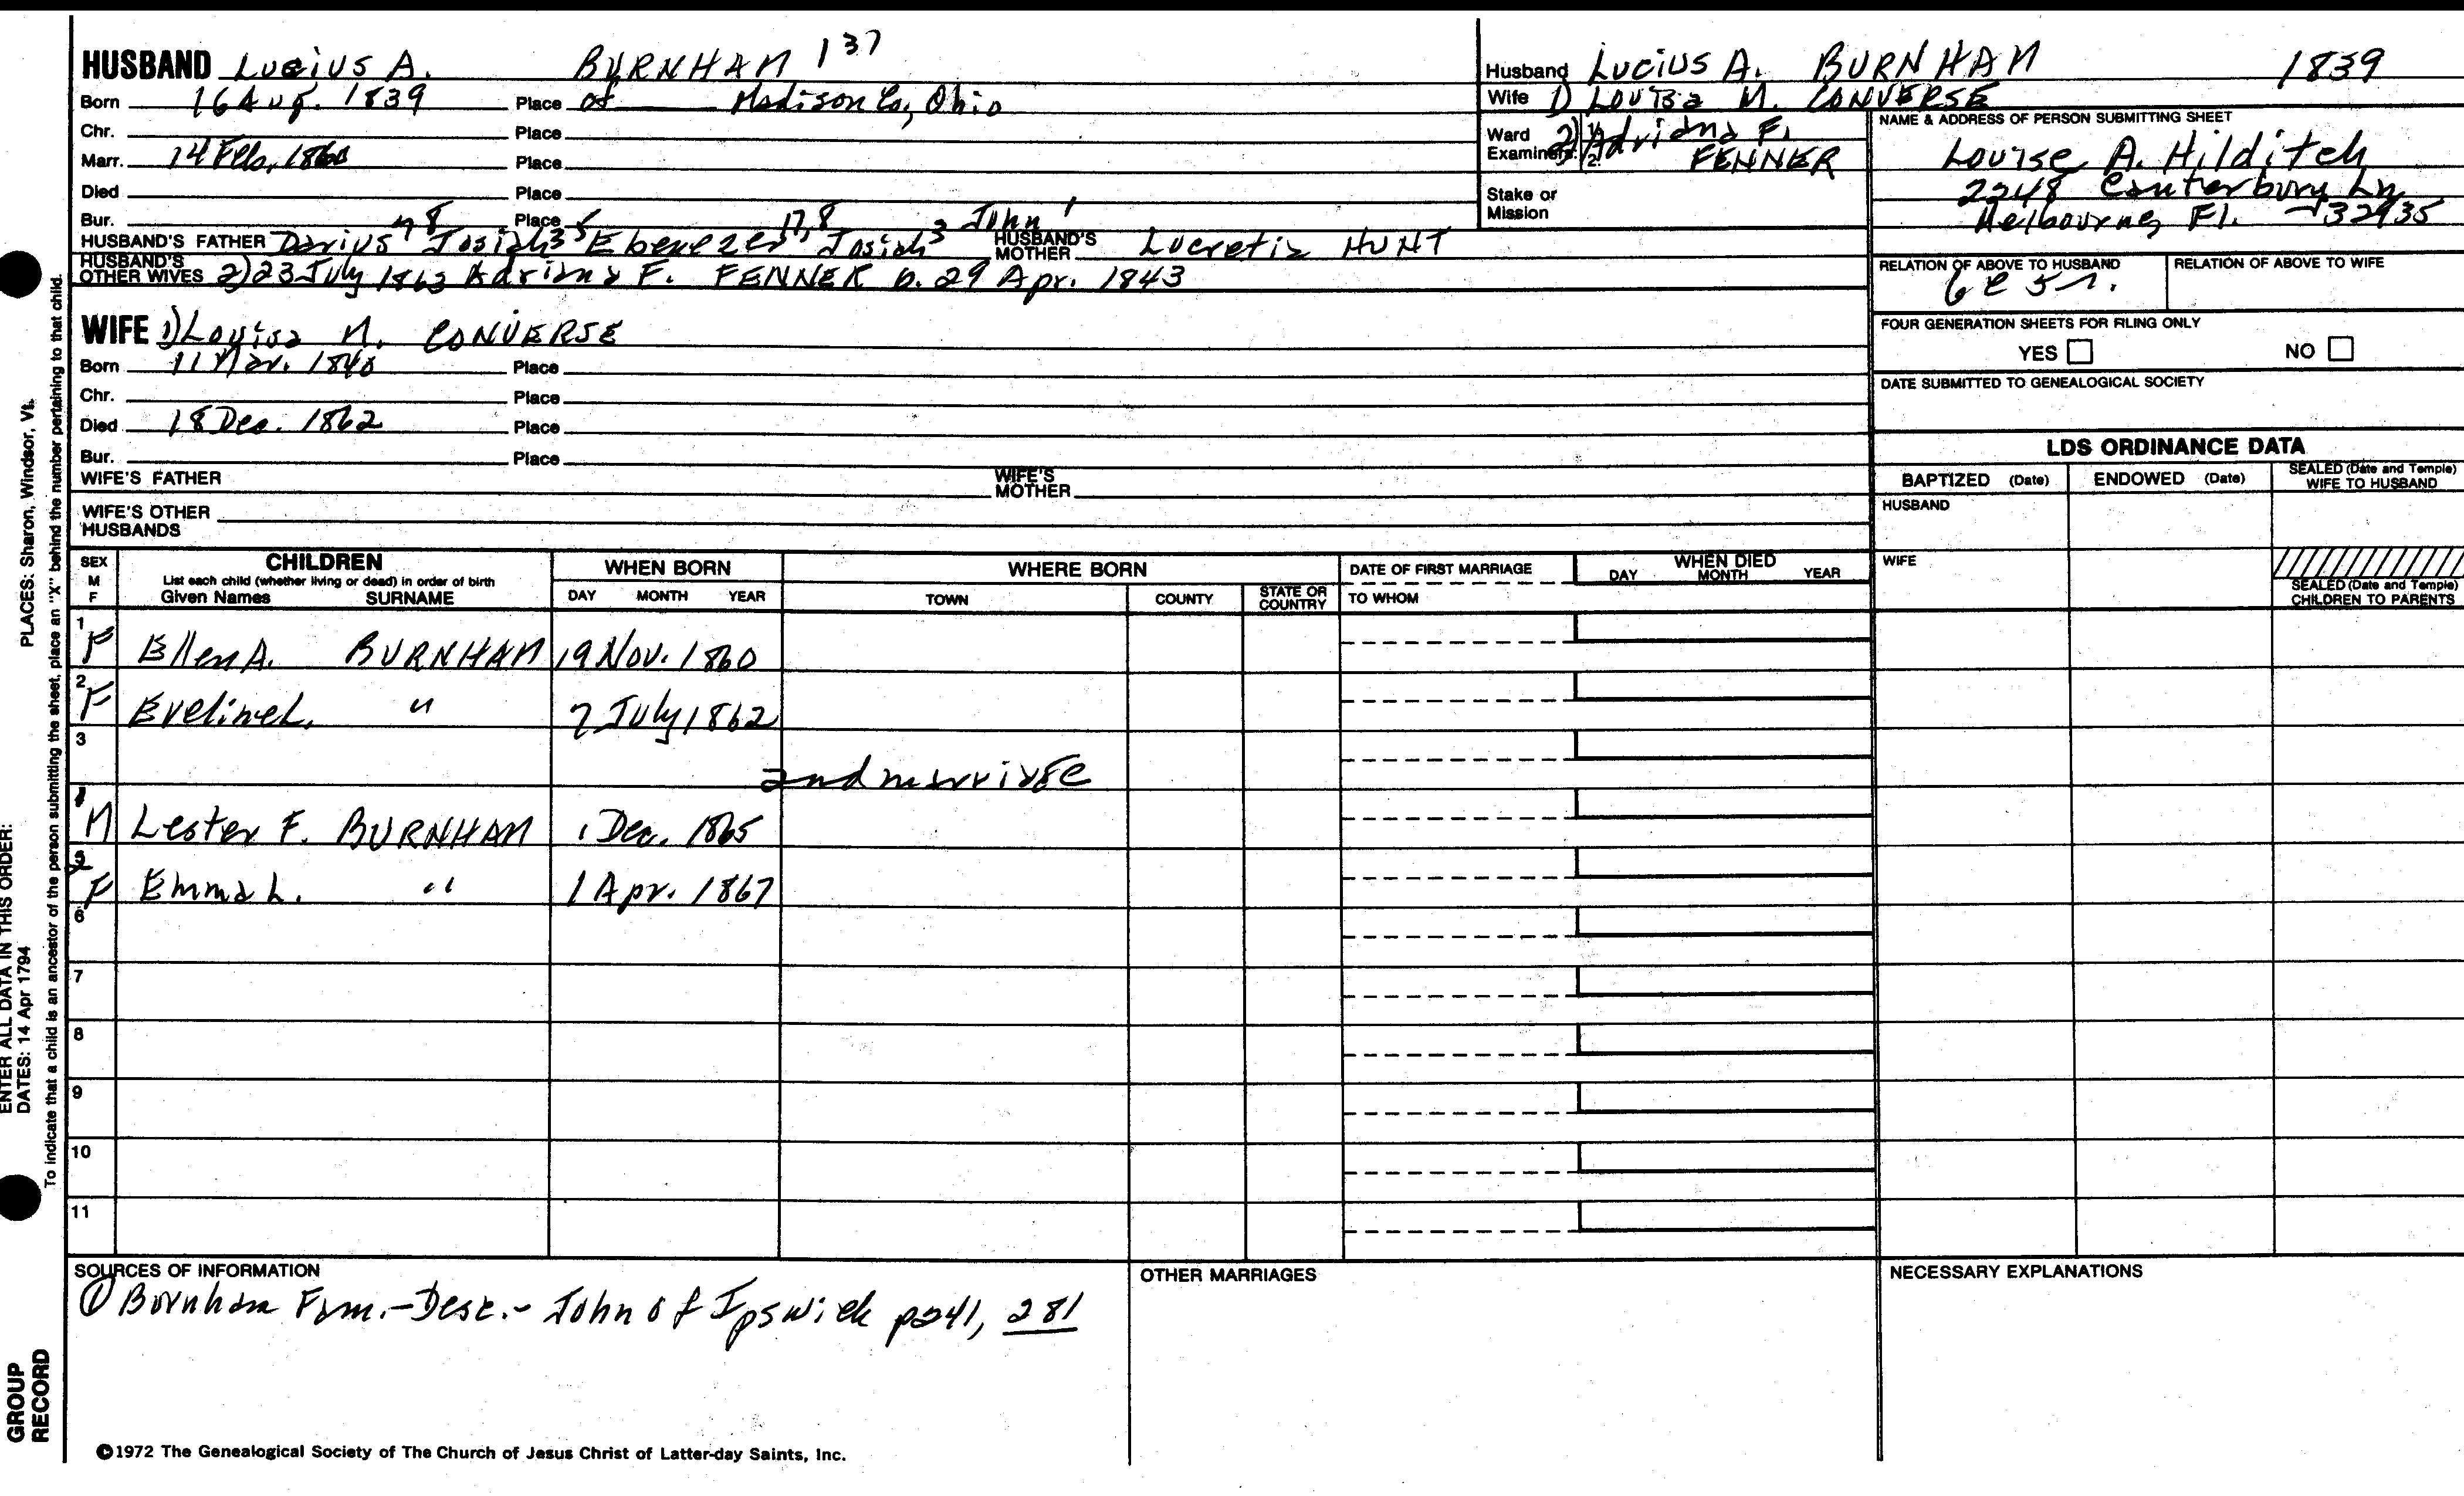 HUSBAND Lucius A. BURNHAM 137
Born 16 Aug. 1839 Place of Madison Co, Ohio
Chr. Place
Marr. 14 Feb, 1860 Place
Died Place
Bur. Place
HUSBAND'S FATHER Darius Josiah Ebenezer Josiah John HUSBAND'S MOTHER Lucretia HUNT
HUSBAND'S OTHER WIVES 2) 23 July 1863 Adriana F. FENNER b. 29 Apr. 1843
WIFE 1) Louisa M. CONVERSE
Born 11 Mar. 1840 Place
Chr. Place
Died 18 Dec. 1862 Place
Bur. Place
WIFE'S FATHER WIFE'S MOTHER
WIFE'S OTHER HUSBANDS
Husband Lucius A. BURNHAM 1839
Wife 1) Louisa M. CONVERSE
Ward Examiners: 1. 2. 2) Adriana F. FENNER
Stake or Mission
NAME & ADDRESS OF PERSON SUBMITTING SHEET
Louise A. Hilditch
2248 Canterbury Ln
Melbourne, Fl. 32935
RELATION OF ABOVE TO HUSBAND RELATION OF ABOVE TO WIFE
FOUR GENERATION SHEETS FOR FILING ONLY
YES NO
DATE SUBMITTED TO GENEALOGICAL SOCIETY
LDS ORDINANCE DATA
BAPTIZED (Date) ENDOWED (Date) SEALED (Date and Temple) WIFE TO HUSBAND
HUSBAND
WIFE
SEALED (Date and Temple) CHILDREN TO PARENTS
SEX M F CHILDREN WHEN BORN WHERE BORN DATE OF FIRST MARRIAGE WHEN DIED
List each child (whether living or dead) in order of birth
Given Names SURNAME DAY MONTH YEAR TOWN COUNTY STATE OR COUNTRY TO WHOM DAY MONTH YEAR
1 F Ellen A. BURNHAM 19 Nov. 1860
2 F Eveline L. " 7 July 1862
3 2nd marriage
1 M Lester F. BURNHAM 1 Dec. 1865
2 F Emma L. " 1 Apr. 1867
6
7
8
9
10
11
SOURCES OF INFORMATION
① Burnham Fam.-Desc.- John of Ipswich p241, 281
OTHER MARRIAGES
NECESSARY EXPLANATIONS
©1972 The Genealogical Society of The Church of Jesus Christ of Latter-day Saints, Inc.
ENTER ALL DATA IN THIS ORDER:
DATES: 14 Apr 1794 PLACES: Sharon, Windsor, Vt.
To indicate that a child is an ancestor of the person submitting the sheet, place an "X" behind the number pertaining to that child.
GROUP
RECORD